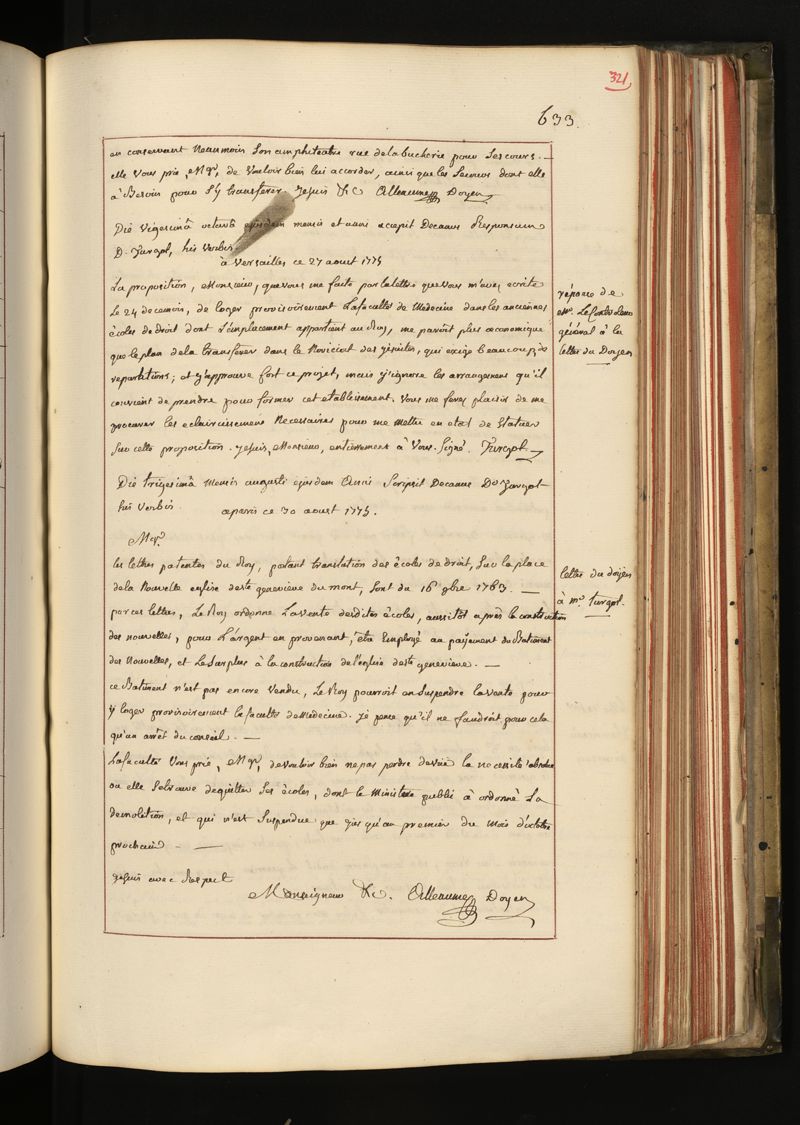 321
633.
en conservant Neanmoin Son amphiteatre rue de la bucherie pour Ses cours. —
elle Vous prie, Mgr, de Vouloir bien lui accorder, ainsi que les Secours dont elle
a Besoin pour s'y transferer. Je suis &c Alleaume Doyen
Die Vigesimâ octavâ ejusdem mensis et anni accepit Decanus Responsum
D. Turgot, his Verbis
à Versailles ce 27 aoust 1775
La proposition, Monsieur, que vous me faite par la lettre que Vous m'avez ecrite
Le 24 de ce mois, de loger provisoirement La faculté de Medecine dans les anciennes
écoles de droit dont l'emplacement appartient au Roy, me paroît plus œconomique
que le plan de la transferer dans le Noviciat des jésuites, qui exige beaucoup de
reparations; et j'approuve fort ce projet, mais j'ignore les arrangemens qu'il
convient de prendre pour former cet etablissement. Vous me ferez plaisir de me
procurer les eclaircissemens Necessaires pour me mettre en etat de Statuer
Sur cette proposition. Je suis, Monsieur, entierement à Vous. Signé. Turgot
réponse de
Mr. Le Contrôleur
général à la
lettre du Doyen
Die trigesimâ Mensis augusti ejusdem Anni Scripsit Decanus Do Turgot
his Verbis. a paris ce 30 aoust 1775.
Mgr.
les lettres patentes du Roy, portant translation des écoles de droit, Sur la place
de la Nouvelle eglise de ste genevieve du mont, Sont du 16 9bre 1763. —
par ces lettres, Le Roy ordonne La vente desdites écoles, aussitôt après la construction
des nouvelles, pour L'argent en provenant, être Employé au paijement du Batiment
des Nouvelles, et Le Surplus à la construction de l'eglise de ste genevieve. —
ce Batiment n'est pas encore Vendu, Le Roy pourroit en Suspendre la vente pour
y loger provisoirement la faculté de Medecine. Je pense qu'il ne faudroit pour cela
qu'un arrêt du conseil. —
La faculté Vous prie, Mgr, de vouloir bien ne pas perdre de vue la necessité absolue
ou elle Se trouve de quitter Ses écoles, dont le Ministere public à ordonné La
demolition, et qui n'est Suspendue que jusqu'au premier du mois d'octobre
prochain. —
Je suis avec Respect
Monseigneur &c. Alleaume Doyen
lettre du doyen
à Mr. turgot.